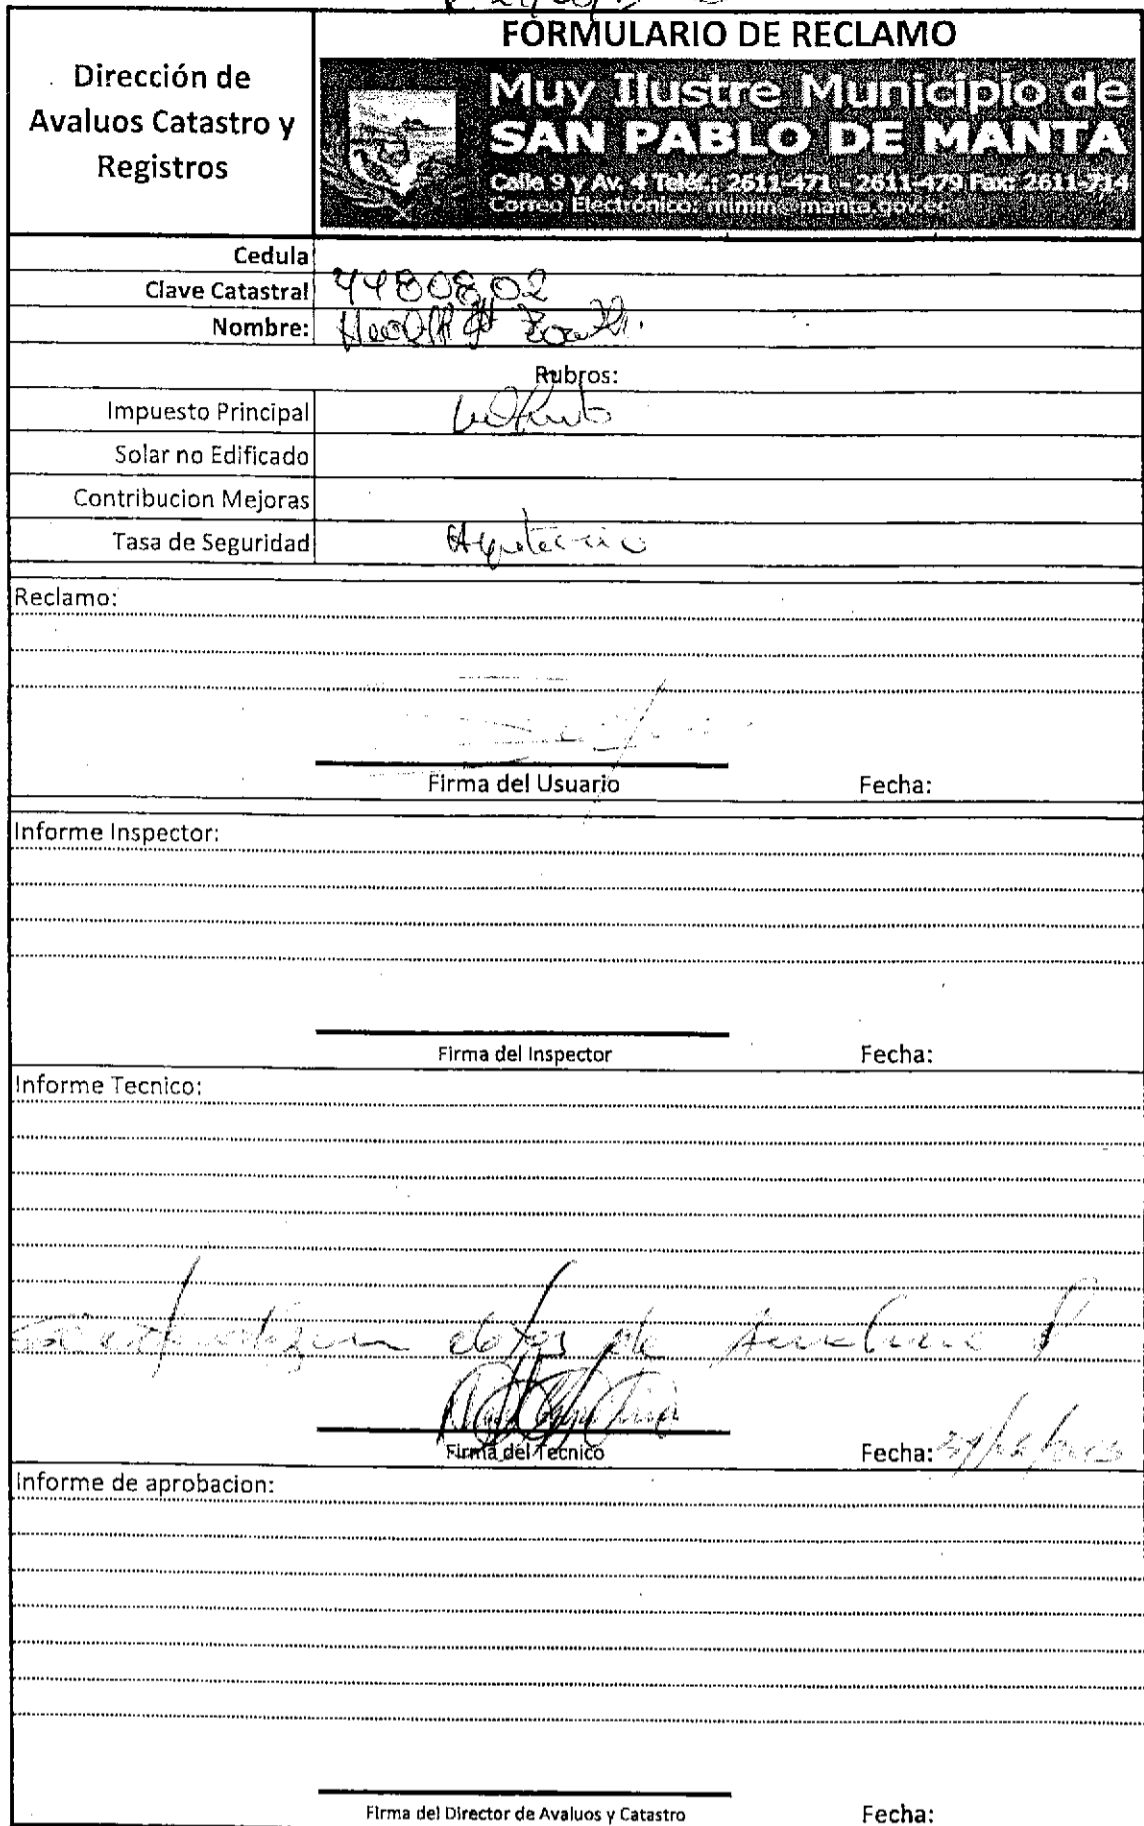 FORMULARIO DE RECLAMO
Dirección de
Avaluos Catastro y
Registros
Muy Ilustre Municipio de
SAN PABLO DE MANTA
Calle 9 y Av. 4 Teléf.: 2611-471 - 2611-479 Fax: 2611-714
Correo Electrónico: mimm@manta.gov.ec
Cedula
Clave Catastral 4480802
Nombre:
Rubros:
Impuesto Principal
Solar no Edificado
Contribucion Mejoras
Tasa de Seguridad
Reclamo:
Firma del Usuario Fecha:
Informe Inspector:
Firma del Inspector Fecha:
Informe Tecnico:
datos de
Firma del Tecnico Fecha:
Informe de aprobacion:
Firma del Director de Avaluos y Catastro Fecha: